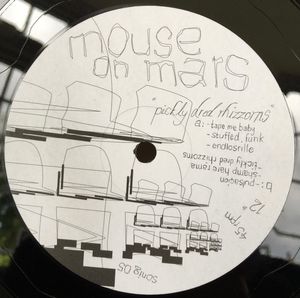 mouse
on mars
"pickly dred rhizzoms"
a: - tape me baby
- stuffed funk
- endlosrille
b: - pulsacion
- swamp hare rama
- pickly dred rhizzoms
12"
45 rpm
sonig 05